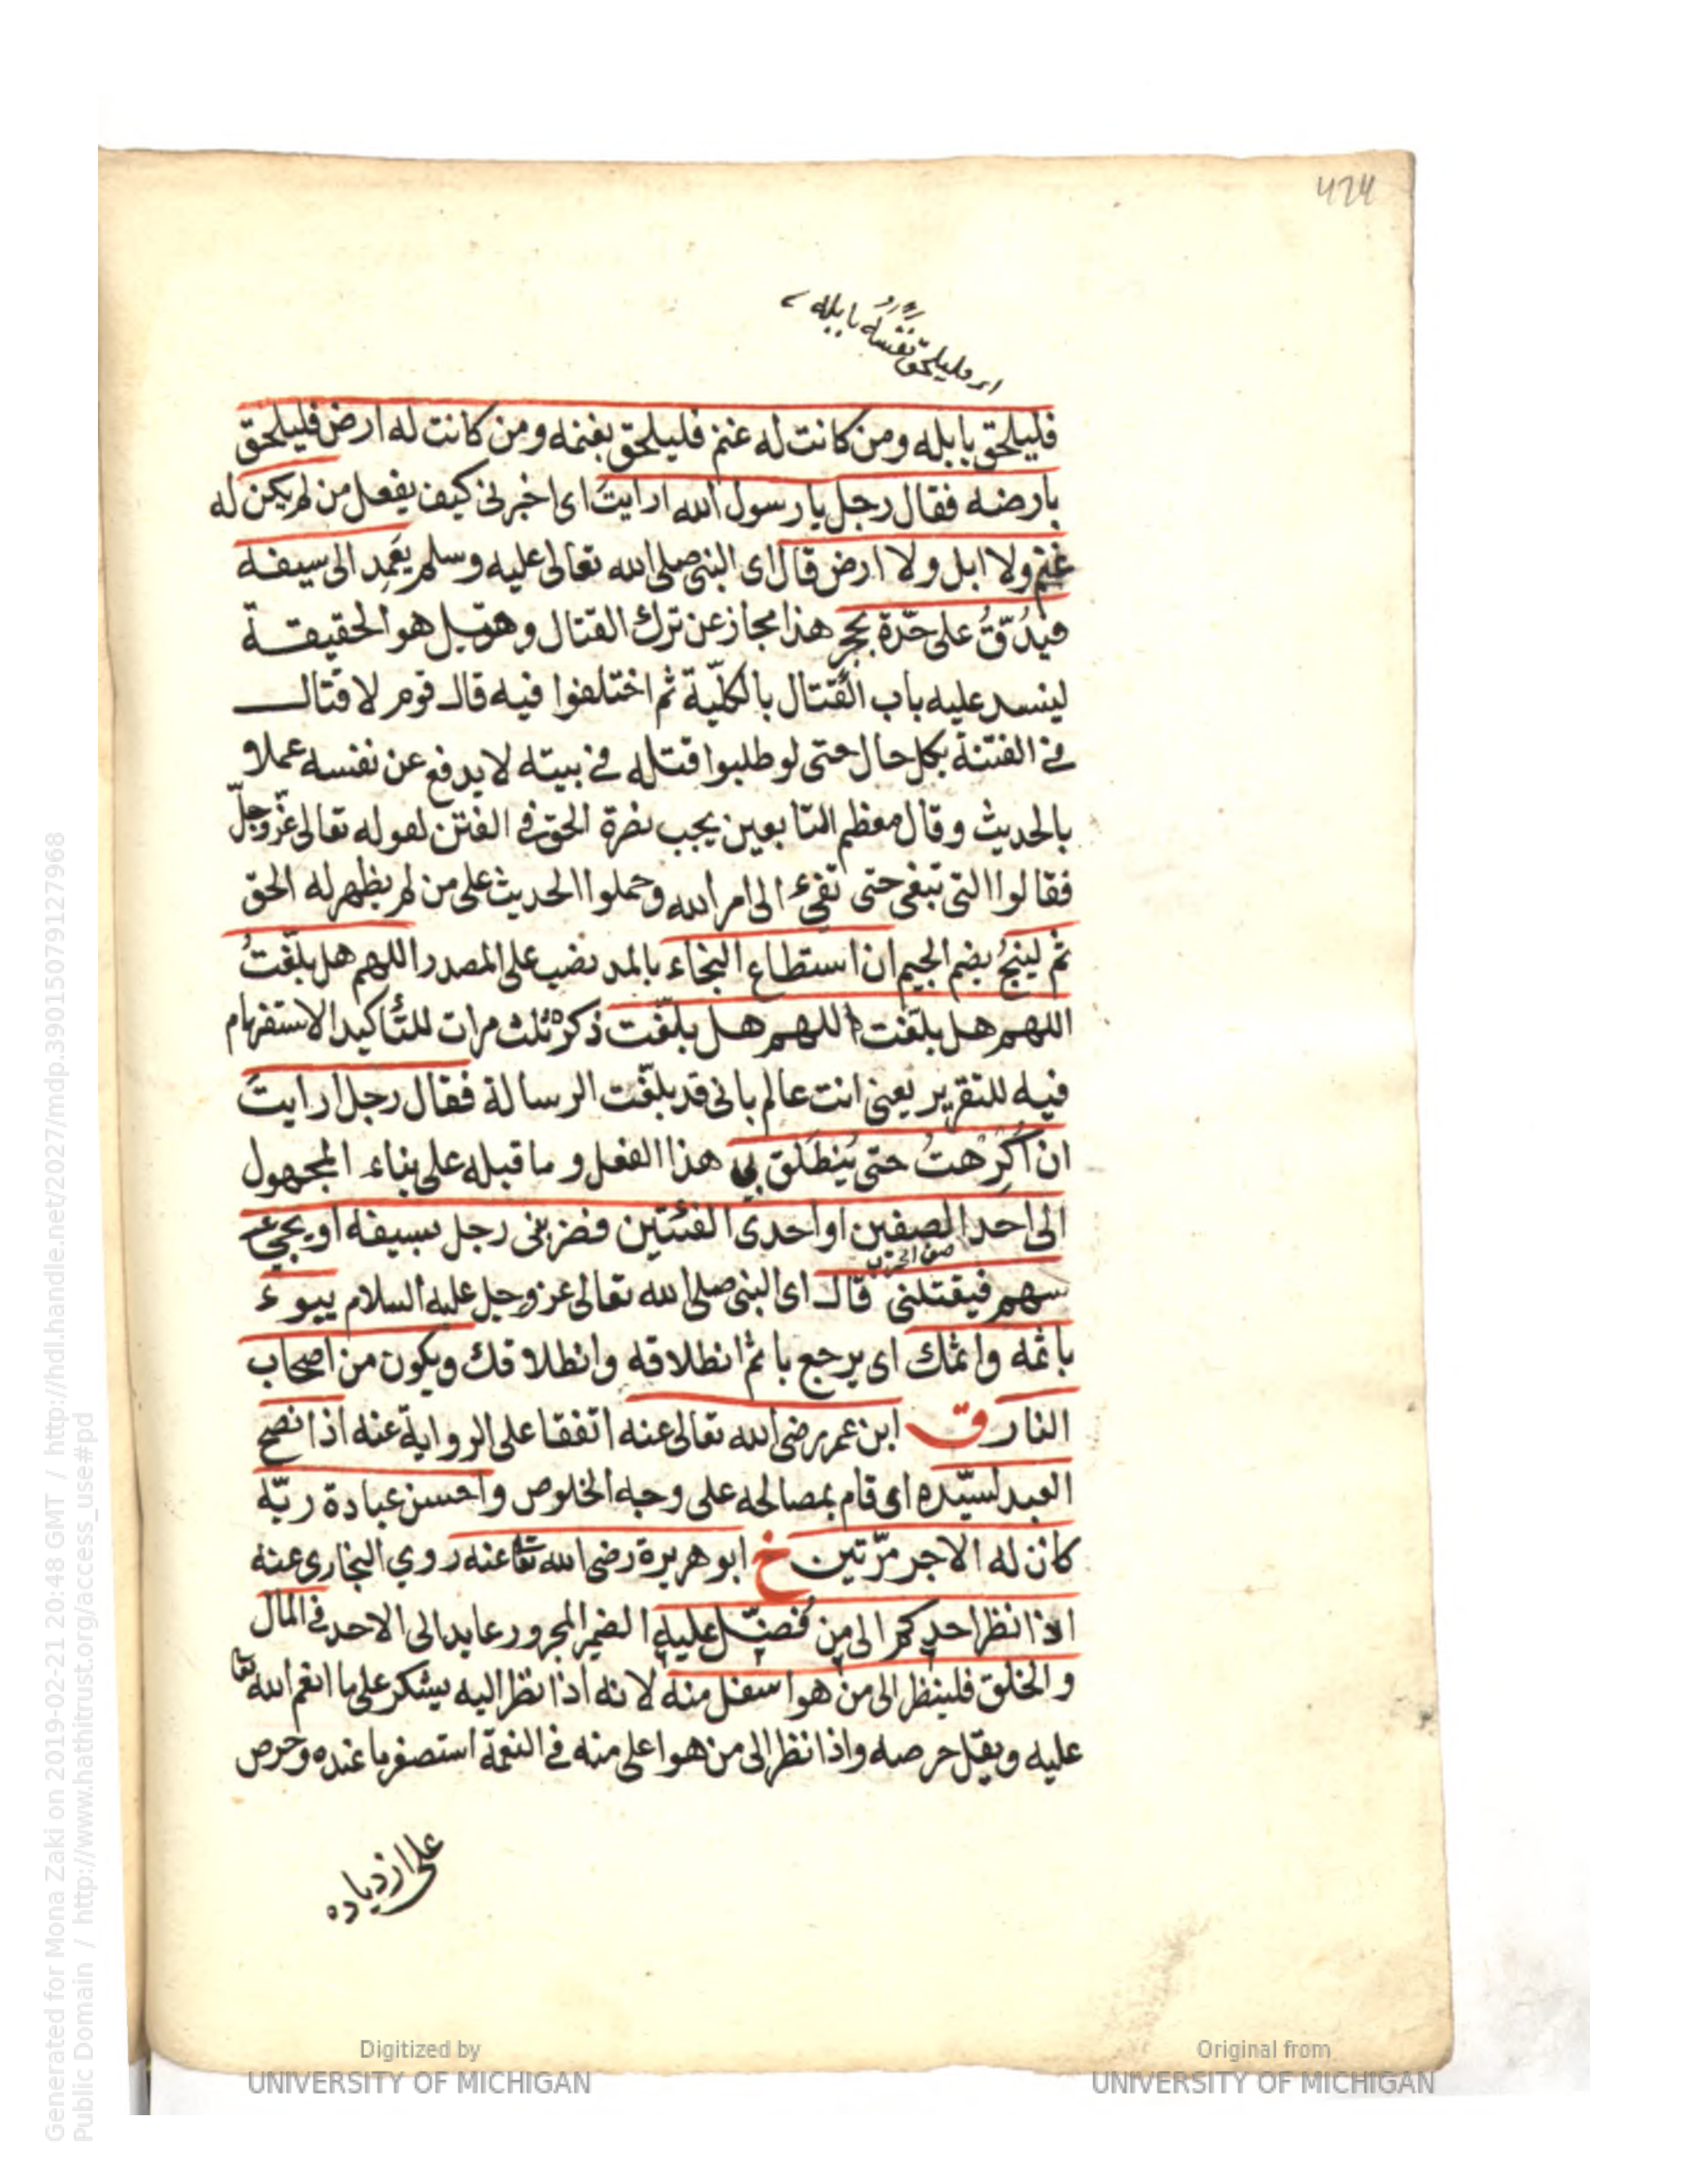 424
اى فليلحق نفسه بابله
فليلحق بابله ومن كانت له غنم فليلحق بغنمه ومن كانت له ارض فليلحق
بارضه فقال رجل يا رسول الله ارايت اى اخبرنى كيف يفعل من لم يكن له
غنم ولا ابل ولا ارض قال اى النبى صلى الله تعالى عليه وسلم يَعْمِد الى سيفه
فيدُقّقُ على حدّه بحجر هذا مجاز عن ترك القتال وقيل هو الحقيقة
لينسد عليه باب القتال بالكلّية ثم اختلفوا فيه قال قوم لا قتال
فى الفتنة بكل حال حتى لو طلبوا قتله فى بيته لا يدفع عن نفسه عملا
بالحديث وقال معظم التابعين يجب نصرة الحق فى الفتن لقوله تعالى عزّ وجلّ
فقالوا التى تبغى حتى تفىء الى امر الله وحملوا الحديث على من لم يظهر له الحق
ثم لينجُ بضم الجيم ان استطاع النجاء بالمد نصب على المصدر اللهم هل بلّغتُ
اللهم هل بلّغت اللهم هل بلّغت ذكره ثلث مرات للتأكيد الاستفهام
فيه للتقرير يعنى انت عالم بانى قد بلّغت الرسالة فقال رجل ارايتَ
ان اُكرِهتُ حتى يُنطَلَق بى هذا الفعل وما قبله على بناء المجهول
الى احد الصفين او احدى الفئتين فضربنى رجل بسيفه او يجىء
صف الحرب
سهم فيقتلنى قال اى النبى صلى الله تعالى عز وجل عليه السلام يبوء
باثمه واثمك اى يرجع باثم انطلاقه وانطلاقك ويكون من اصحاب
النار ق ابن عمر رضى الله تعالى عنه اتفقا على الرواية عنه اذا نصح
العبد لسيّده اى قام بمصالحه على وجه الخلوص واحسن عبادة ربّه
كان له الاجر مرّتين خ ابو هريرة رضى الله تعا عنه روي البخارى عنه
اذا نظر احدكم الى من فُضّل عليه الضمير المجرور عايد الى الاحد فى المال
والخلق فلينظر الى من هو اسفل منه لانه اذا نظر اليه يشكر على ما انعم الله تعا
عليه ويقل حرصه واذا نظر الى من هو اعلى منه فى النعمة استصغر ما عنده وحرص
على ازدياده
Generated for Mona Zaki on 2019-02-21 20:48 GMT / http://hdl.handle.net/2027/mdp.39015079127968
Public Domain / http://www.hathitrust.org/access_use#pd
Digitized by
UNIVERSITY OF MICHIGAN
Original from
UNIVERSITY OF MICHIGAN